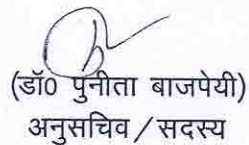 (डॉ0 पुनीता बाजपेयी)
अनुसचिव / सदस्य